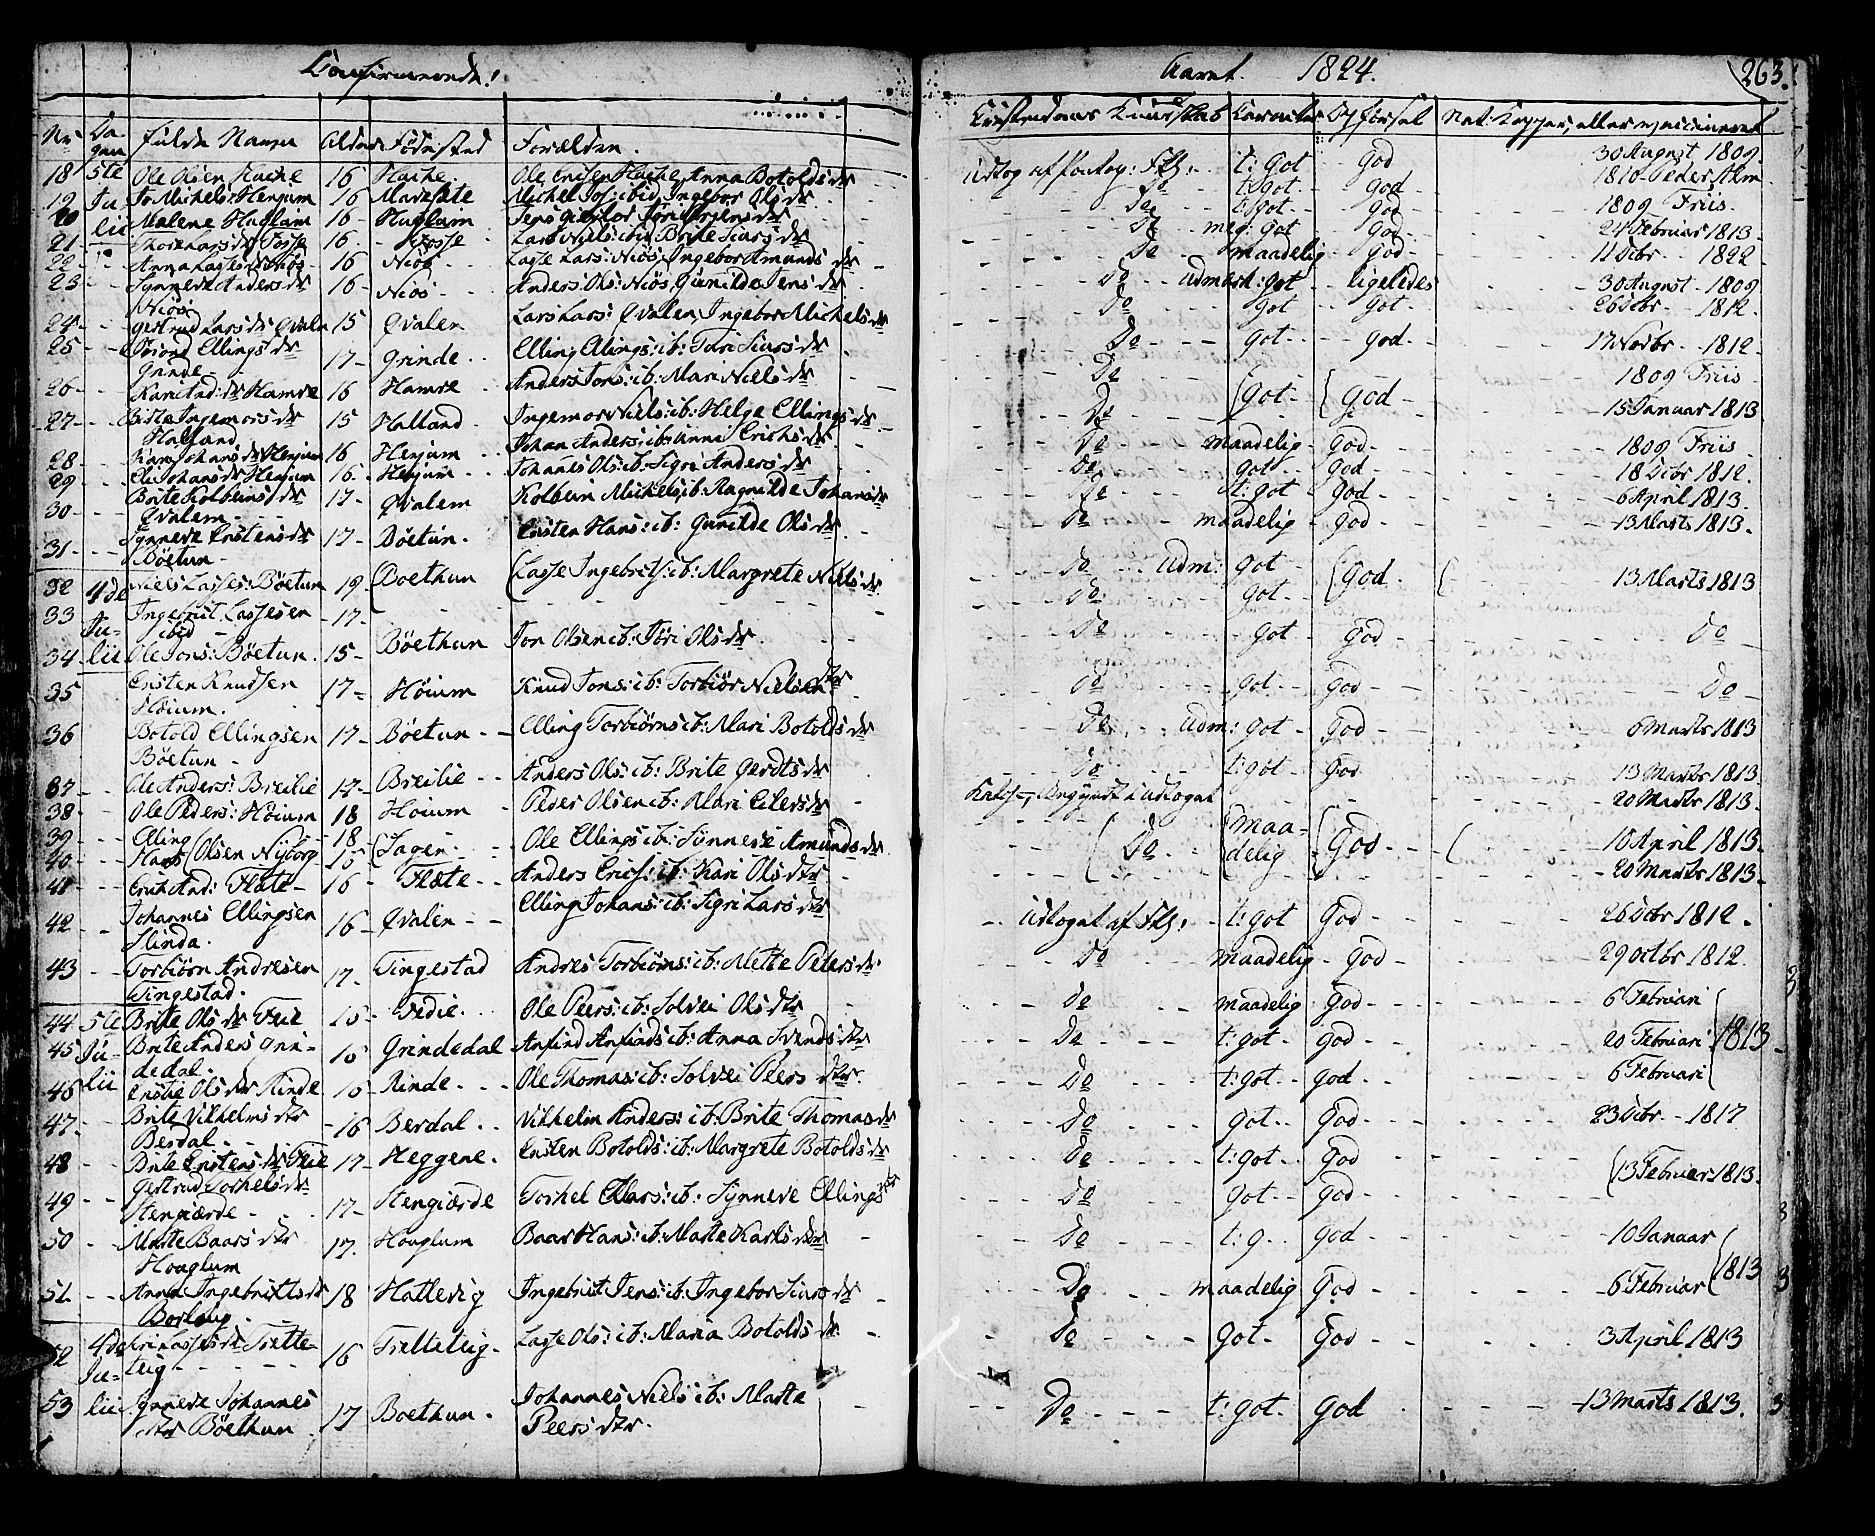 Confirmerede! Aaret 1824. 263.
No Dagen Fulde Navn Alder Fødested Forældre. Christendoms Kundskab Karacter Opførsel Nat: Kopper, eller vaccineret
18 5te Ole Olsen Hache 16 Hache. Ole Ericsen Hache, Anna Botolds dr Udtog af Forkog: Fkl: t: got god 30 August 1809.
19 Ju Jo Michels: Henjum 16 Do t: got god 1810
20 lii Malene Huglum 16 Huglum Do t: got god 1809 Friis
21 Lars dr Fosse 16 Fosse Lars Niels: ibid Brite Siurs dr Do meg: got god 24 Februar 1813
22 Anna Lasses dr Niös 16 Niös Lasse Lars: Niös, Ingebor Amunds dr Do maadelig god 11 Octbr 1822
23 Synneve Anders dr Niös 16 Niös Anders Ols: Niös, Gunilde Jens dr Do Udmærk: got ligeledes 30 August 1809
24 Gertrud Lars dr Qvalen 15 Qvalen Lars Lars: Qvalen, Ingebor Michels dr Do got got 26 Octbr 1812.
25 Ellings dr Grinde 17 Grinde Elling Ellings: ib: Tøri Siurs dr Do got god 17 Novbr 1812
26 Kari And: dr Hamre 16 Hamre Anders Jons: ib: Mari Niels dr Do got god 1809 Friis
27 Brite Ingemors dr Halland 15 Halland Ingemor Niels: ib: Helge Ellings dr Do 15 Januar 1813
28 Kari Johans dr Henjum 16 Henjum Johan Anders: ib: Anna Erichs dr Do maadelig god 1809 Friis
29 Eli Johans dr Henjum 16 Henjum Johanes Ols: ib: Sigri Anders dr Do got god 18 Octbr 1812.
30 Brite Kolbeins dr Qvalem 17 Qvalem Kolbein Michels: ib: Ragnilde Johans dr Do t: got god 6 April 1813.
31 Synneve Enstens dr Böetun 17 Böetun. Ensten Hans: ib: Gunilde Ols dr Do maadelig god 13 Marts 1813.
32 4de Niels Lasses: Böetun 19 Boethun Lasse Ingebrits: ib: Margrete Niels dr Do Udm: got god 13 Marts 1813
33 Ju- Ingebrit Lassesen ibid 17 Do got
34 lii Ole Jons: Böetun 15 Böethun Jon Olsen ib: Jöri Ols dr Do got god Do
35 Ensten Knudsen Höium. 17 Höium Knud Jons: ib: Torbiör Nielsen dtr Do got god Do
36 Botold Ellingsen Böetun 17 Böetun Elling Torbiörns: ib: Mari Botolds dr Do Udm: got god 6 Marts 1813
37 Ole Anders: Breilie 17 Breilie Anders Ols: ib: Brite Gerdts dr Do t: got god 13 Marts 1813
38 Ole Peders: Höium 18 Höium Peder Olsen ib: Mari Eilers dr 20 Martz 1813.
39 Elling 18 Lagen Ole Ellings: ib: Synneve Amunds dr Do maadelig God 10 April 1813
40 Hans Olsen Nyborg 15 20 Marts 1813
41 Erik And: Flæte 16 Flæte Anders Erics: ib: Kari Ols dtr
42 Johannes Ellingsen Slinda. 16 Qvalen Elling Johans: ib: Sigri Lars dr Udtoget af Fkl: t: got god 26 Octbr 1812.
43 Torbiörn Andresen Tingestad. 17 Tingestad Andres Torbiörns: ib: Mette Peters dr Do maadelig god 29 Octbr 1812.
44 5te Brite Ols dr Feie 15 Fedie. Ole Peers: ib: Solvei Ols dtr Do maadelig god 6 Februari 1813
45 Ju- Brite Anders Grindedal. 15 Grindedal Anfind Anfinds: ib: Anna Svends dtr Do t: got god 20 Februari
46 lii Enstie Ols dr Rinde 15 Rinde Ole Thomas: ib: Solvei Peers dtr. Do t: got god 6 Februari
47 Brite Vilhelms dtr Berdal 16 Berdal Vilhelm Anders: ib: Brite Thomas dr Do got god 23 Octbr 1817
48 Brite Enstens dr Feie 17 Heggene. Ensten Botolds: ib: Margrete Botolds dr Do t: got god 13 Februar 1813.
49 Gertrud Torkels dr Stengiærde 17 Stengiærde Torkel Ellars: ib: Synneve Ellings dr Do got god
50 Marte Baars dtr Hoaglum 17. Hoaglum Baar Hans: ib: Marte Karls dtr Do t: g god 10 Januar 1813
51 Anna Ingebrikts dr Borlaug 18 Hattevig Ingebrit Jens: ib: Ingebor Siurs dr Do maadelig god 6 Februar
52 4de Lasses dr Tretteteig 16 Tretteteig Lasse Ols: ib: Maria Botolds dr Do got god 3 April 1813
53 Ju-lii Synneve Johannes dtr Böethun 17 Boethun. Johannes Niels: ib: Marte Peers dtr. Do t: got god 13 Marts 1813.